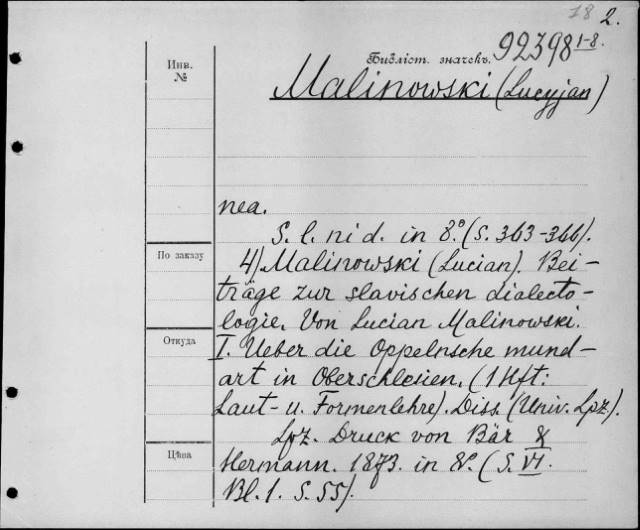 18 2.
Библіот. значекъ. 92398 1-8.
Инв.
№
Malinowski (Lucyjan)
nea.
S. l. ni d. in 8.° (S. 363-366).
По заказу
4) Malinowski (Lucian). Bei-
träge zur slavischen dialecto-
logie. Von Lucian Malinowski.
Откуда
I. Ueber die Oppelnsche mund-
art in Oberschlesien. (1 Hft:
Laut- u. Formenlehre). Diss. (Univ. Lpz).
Lpz. Druck von Bär &
Цѣна
Hermann. 1873. in 8°. (S. VI.
Bl. 1. S. 55).